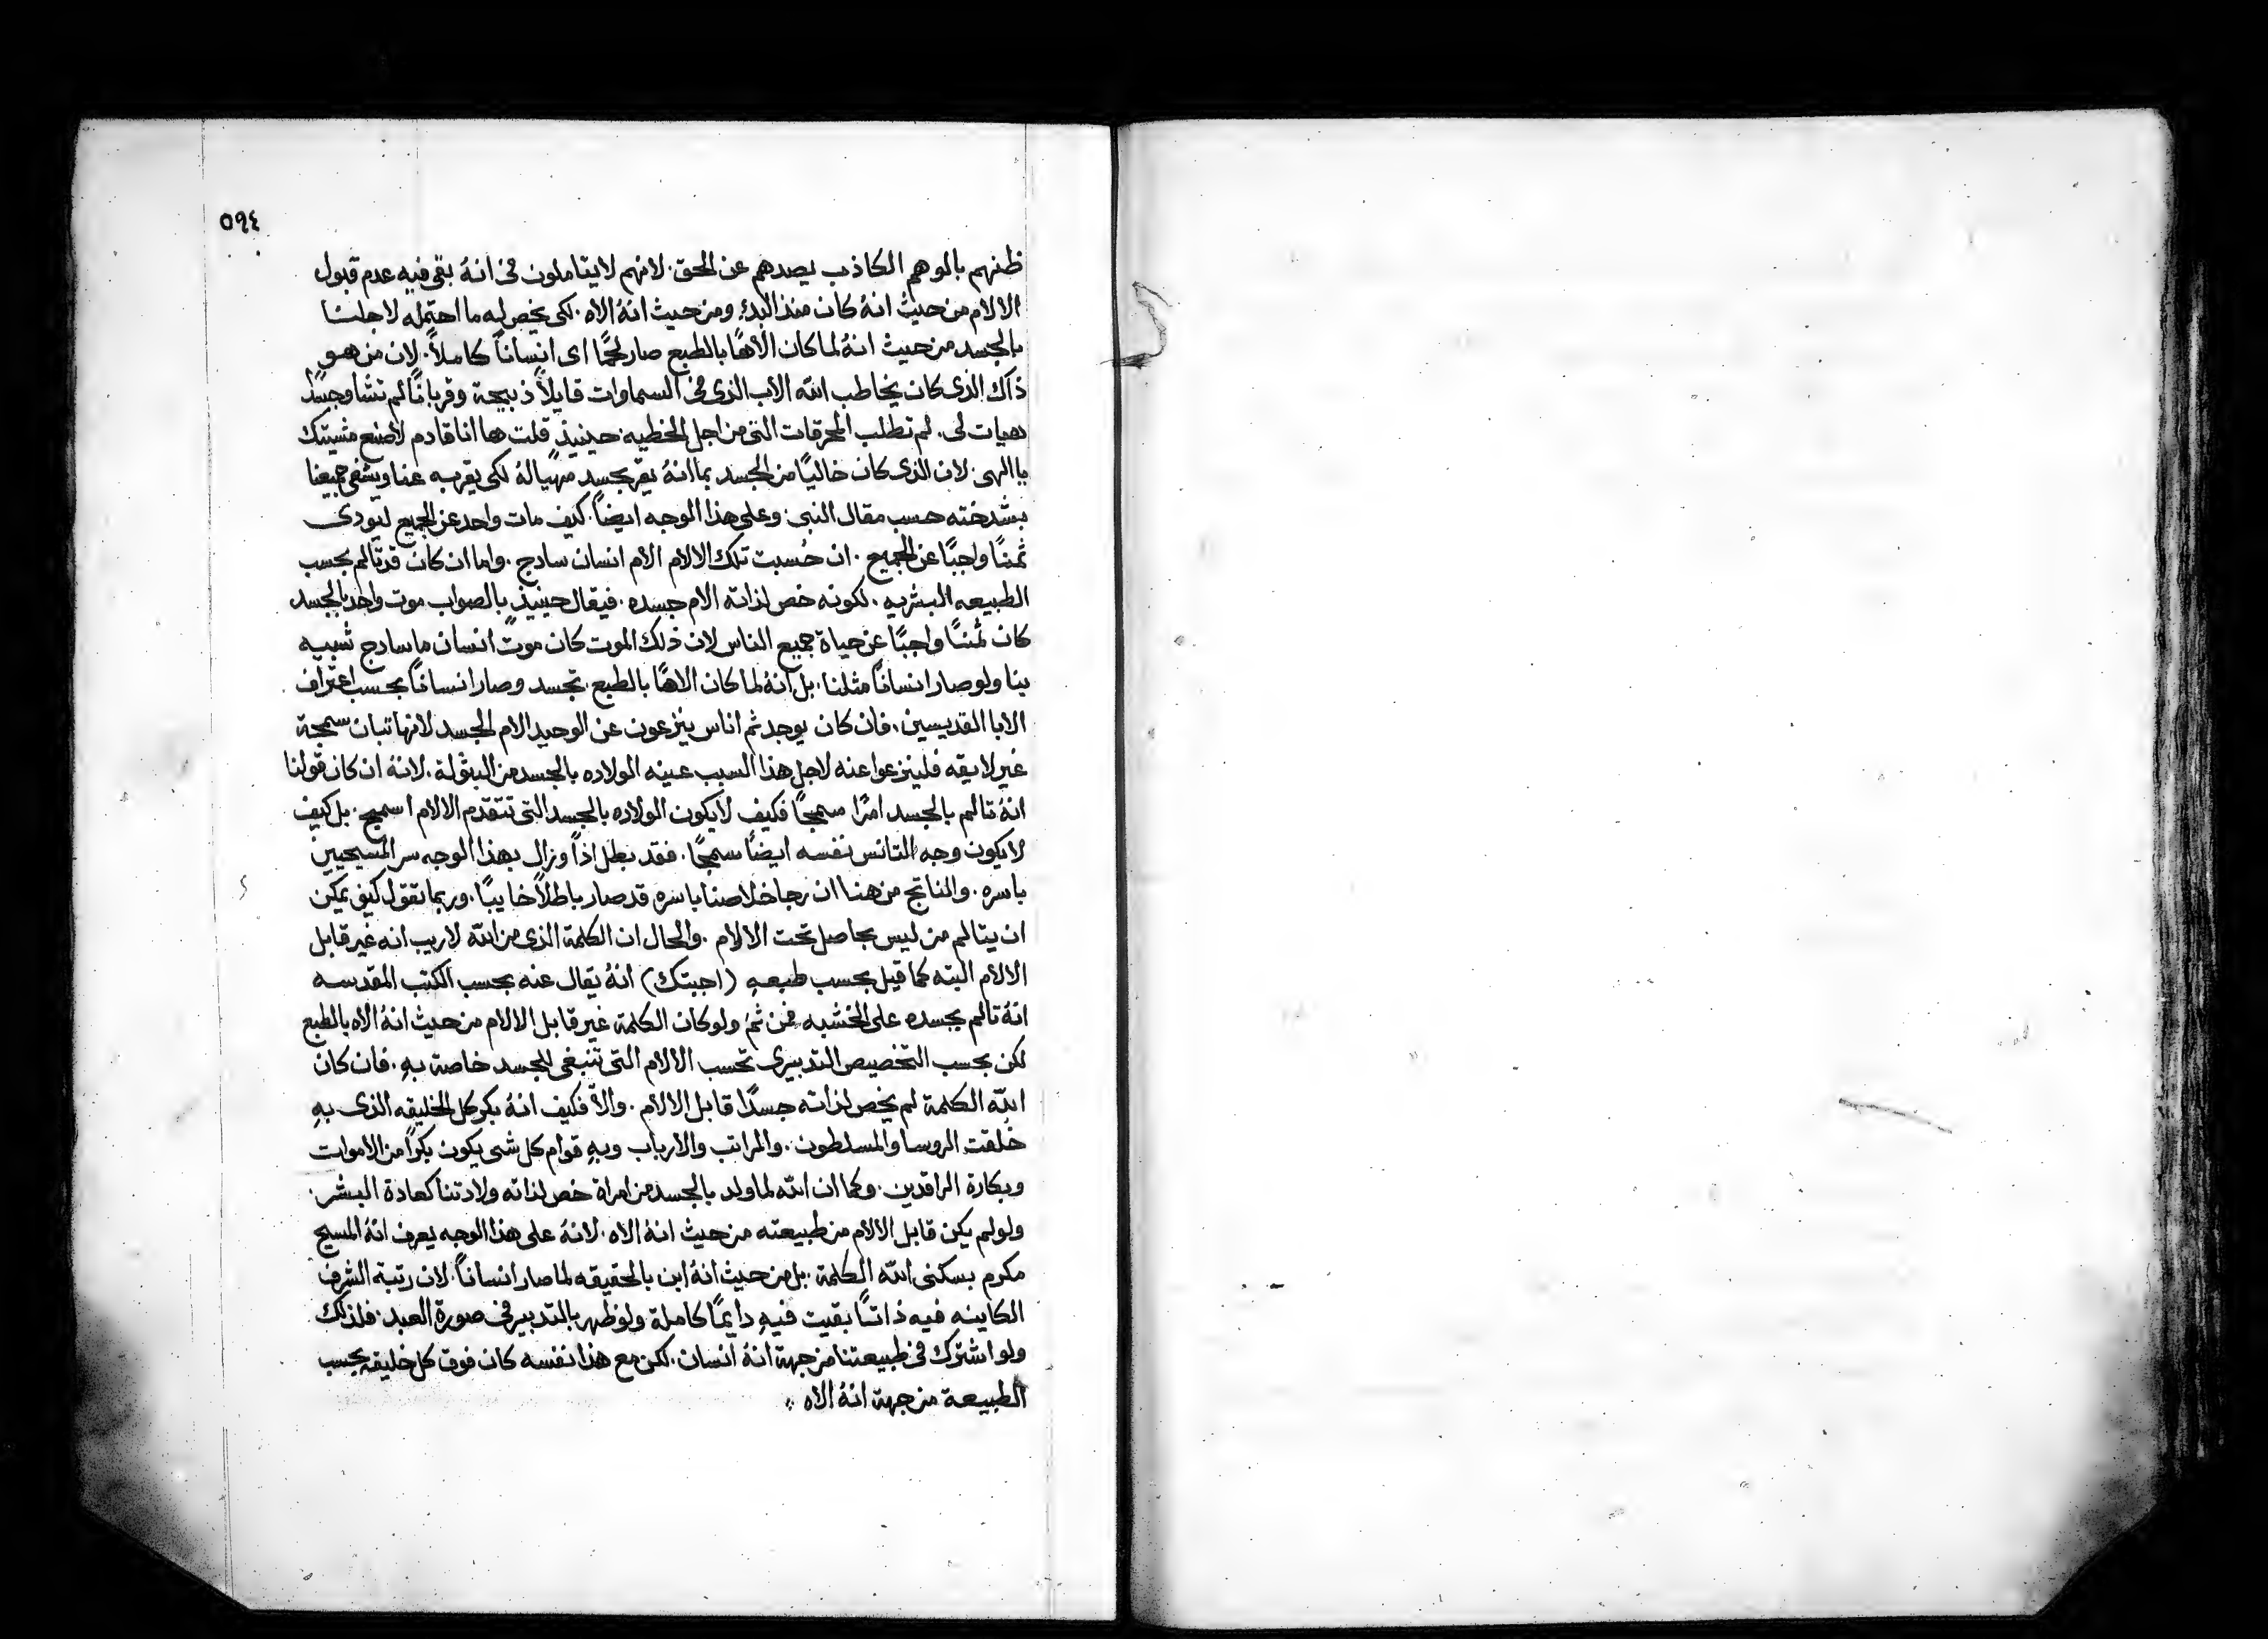 ٥٩٤
ظنهم بالوهم الكاذب يصدهم عن الحق. لانهم لا يتاملون في انهُ بقى فيه عدم قبول
الالام من حيث انهُ كان منذ البدءِ ومن حيث انهُ الاه. لكى يخص له ما احتمله لاجلنا
بالجسد من حيث انهُ لما كان الاهًا بالطبع صار لحمًا اى انسانًا كاملاً. لان من هو
ذاك الذى كان يخاطب الله الاب الذى في السماوات قايلاً ذبيحة وقربانًا لم تشا وجسدًا
هيات لى. لم تطلب المحرقات التى من اجل الخطيه. حينيذٍ قلت ها انا قادم لاصنع مشيتك
يا الهى. لان الذى كان خاليًا من الجسد بما انهُ يقر بجسد مهيا لهُ لكى يقربه عنا ويشفى جميعنا
بشدخته حسب مقال النبى. وعلى هذا الوجه ايضًا. كيف مات واحد عن الجميع ليودى
ثمنًا واجبًا عن الجميع. ان حُسبت تلك الالام الام انسان سادج. واما ان كان قد تالم بحسب
الطبيعه البشريه. لكونه خص لذاته الام جسده. فيقال حينيذٍ بالصواب موت واحد بالجسد
كان ثمنًا واجبًا عن حياة جميع الناس لان ذلك الموت كان موت انسان ما سادج شبيه
بنا ولو صار انسانًا مثلنا. بل انهُ لما كان الاهًا بالطبع. تجسد وصار انسانًا بحسب اعتراف
الابا القديسين. فان كان يوجد ثم اناس ينزعون عن الوحيد الام الجسد لانها تبان سمجة
غير لايقه فلينزعوا عنه لاجل هذا السبب عينه الولاده بالجسد من البتولة. لانهُ ان كان قولنا
انهُ تالم بالجسد امرًا سمجًا فكيف لا يكون الولاده بالجسد التى تتقدم الالام اسمج. بل كيف
لا يكون وجه التانس نفسه ايضًا سمجًا. فقد بطل اذًا وزال بهذا الوجه سر المسيحيين
باسره. والناتج من هنا ان رجا خلاصنا باسره قد صار باطلاً خايبًا. وربما تقول كيف يمكن
ان يتالم من ليس بحاصل تحت الالام. والحال ان الكلمة الذى من الله لا ريب انه غير قابل
الالام البته كما قيل بحسب طبعهِ (اجبتك) انهُ يقال عنه بحسب الكتب المقدسه
انهُ تالم بجسده على الخشبه فمن ثم ولو كان الكلمة غير قابل الالام من حيث انهُ الاه بالطبع
لكن بحسب التخصيص التدبيرى تحسب الالام التى تنبغى للجسد خاصة بهِ. فان كان
الله الكلمة لم يخص لذاته جسدًا قابل الالام. والاّ فكيف انهُ بكر كل الخليقه الذى بهِ
خلقت الروسا والمسلطون. والمراتب والارباب وبهِ قوام كل شى يكون بكرًا من الاموات
وبكارة الراقدين. وكما ان الله لما ولد بالجسد من امراة خص لذاته ولادتنا كعادة البشر.
ولو لم يكن قابل الالام من طبيعته من حيث انهُ الاه. لانهُ على هذا الوجه يعرف انهُ المسيح
مكرم بسكنى الله الكلمة. بل من حيث انهُ ابن بالحقيقه لما صار انسانًا. لان رتبة الشرف
الكاينه فيه ذاتًا بقيت فيهِ دايمًا كاملة ولو ظهر بالتدبير في صورة العبد. فلذلك
ولو اشترك في طبيعتنا من جهة انهُ انسان. لكن مع هذا نفسه كان فوق كل خليقه بحسب
الطبيعة من جهة انهُ الاه